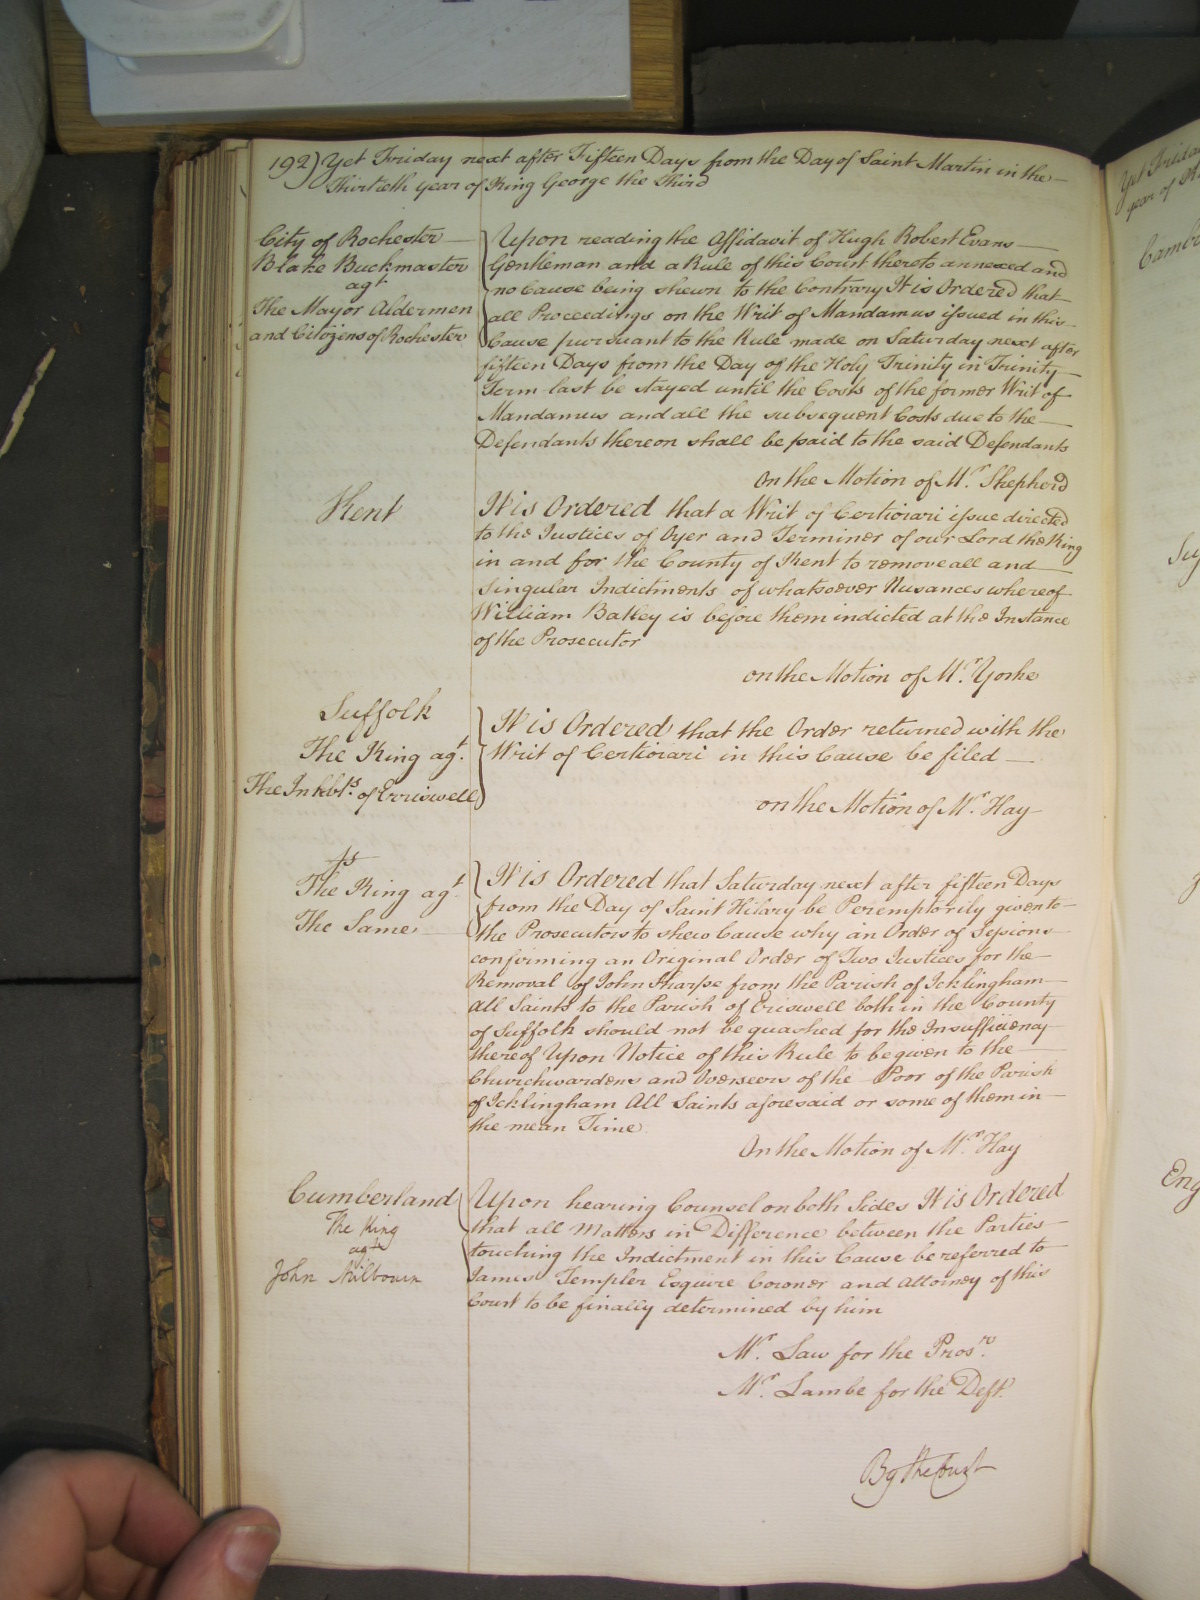 192) Yet Friday next after Fifteen Days from the Day of Saint Martin in the
Thirtieth year of King George the Third
City of Rochester
Blake Buckmaster
agt
The Mayor Aldermen
and Citizens of Rochester
Upon reading the Affidavit of Hugh Robert Evans
Gentleman and a Rule of this Court thereto annexed and
no Cause being shewn to the Contrary It is Ordered that
all Proceedings on the Writ of Mandamus issued in this
Cause pursuant to the Rule made on Saturday next after
fifteen Days from the Day of the Holy Trinity in Trinity
Term last be stayed until the Costs of the former Writ of
Mandamus and all the subsequent Costs due to the
Defendants thereon shall be paid to the said Defendants
On the Motion of Mr. Shepherd
Kent
It is Ordered that a Writ of Certiorari issue directed
to the Justices of Oyer and Terminer of our Lord the King
in and for the County of Kent to remove all and
singular Indictments of whatsoever Nusances whereof
William Batley is before them indicted at the Instance
of the Prosecutor
on the Motion of Mr. Yorke
Suffolk
The King agt.
The Inhbts. of Erriswell
It is Ordered that the Order returned with the
Writ of Certiorari in this Cause be filed
on the Motion of Mr. Hay
ss
The King agt
The Same
It is Ordered that Saturday next after fifteen Days
from the Day of Saint Hilary be Peremptorily given to
the Prosecutors to shew Cause why an Order of Sessions
confirming an Original Order of Two Justices for the
Removal of John Sharpe from the Parish of Icklingham
All Saints to the Parish of Eriswell both in the County
of Suffolk should not be quashed for the Insufficiency
thereof Upon Notice of this Rule to be given to the
Churchwardens and Overseers of the Poor of the Parish
of Icklingham All Saints aforesaid or some of them in
the mean Time
On the Motion of Mr. Hay
Cumberland
The King
agt
John Milbourn
Upon hearing Counsel on both Sides It is Ordered
that all Matters in Difference between the Parties
touching the Indictment in this Cause be referred to
James Templer Esquire Coroner and Attorney of this
Court to be finally determined by him
Mr. Law for the Prosr.
Mr. Lambe for the Deft.
By the Court